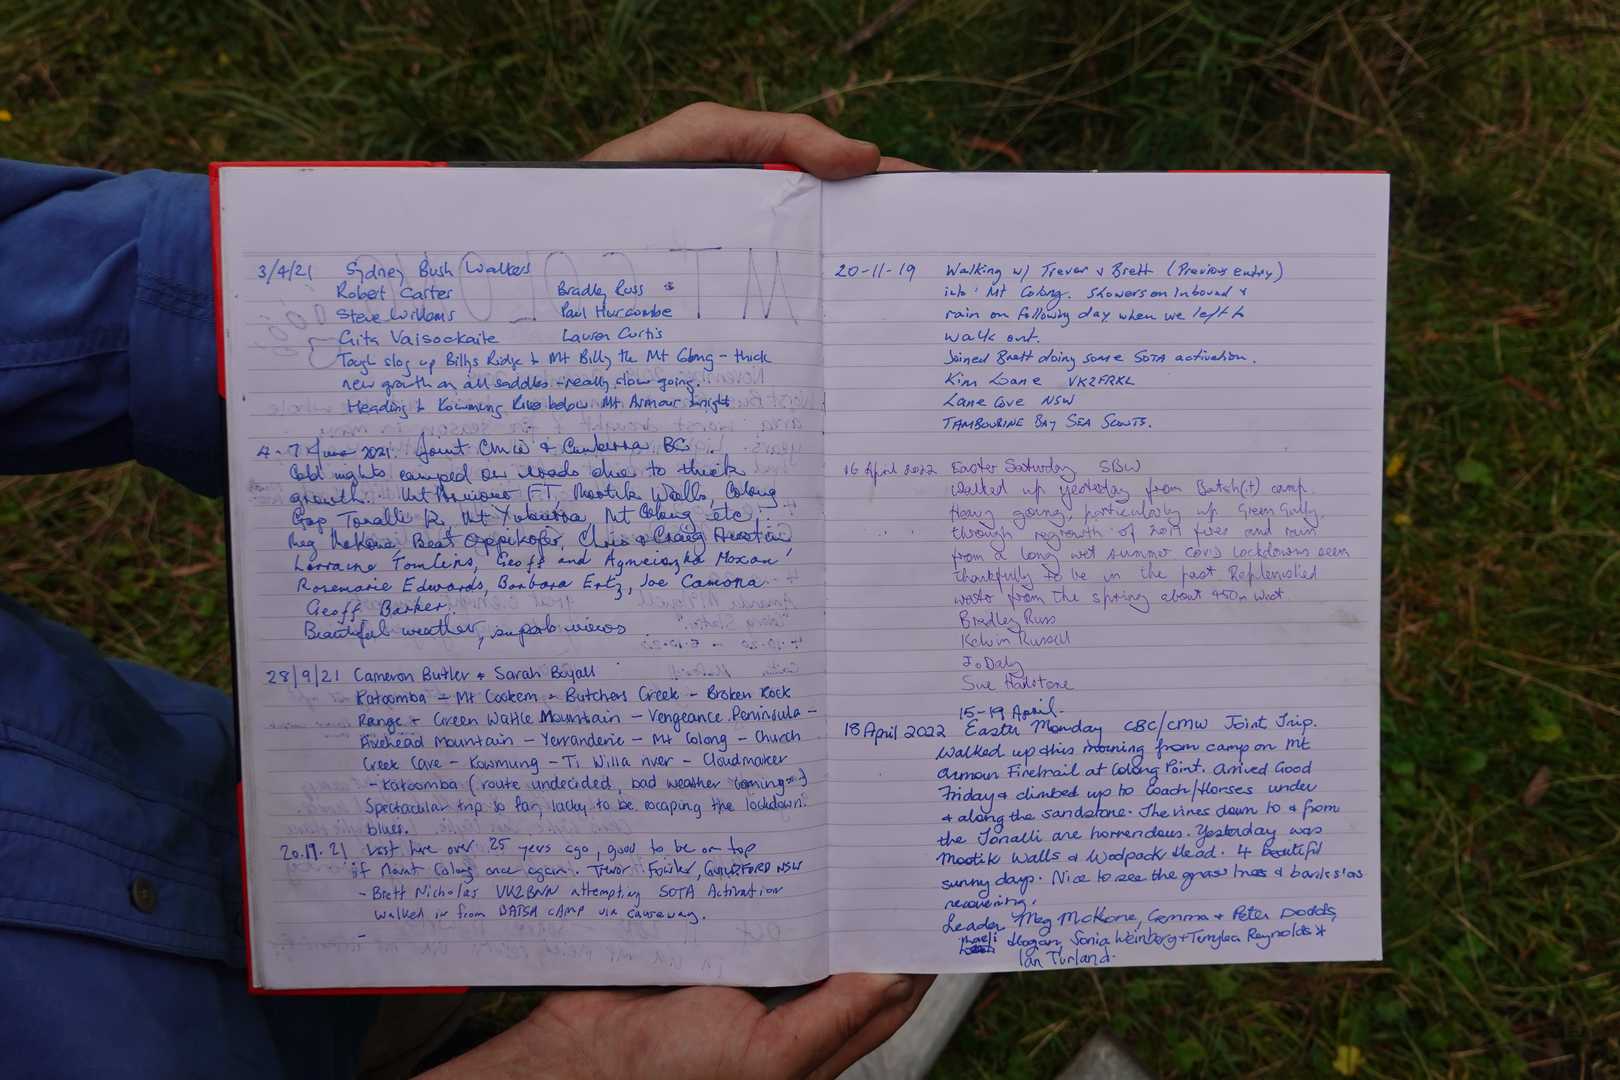 3/4/21 Sydney Bush Walkers
Robert Carter Bradley Russ
Steve Williams Paul Hurcombe
Gita Vaisockaite Lauren Curtis
Tough slog up Billys Ridge to Mt Billy the Mt Colong - thick
new growth on all saddles - really slow going.
Heading to Kowmung River below Mt Armour tonight
4-7 June 2021. Joint CMW & Canberra BC
Cold nights camped on roads due to thick
growth. Mt FT, Mootik Walls, Colong
Gap Tonalli R, Mt Yuburra, Mt Colong etc.
Meg McKone, Beat Oppikofer, Chris & Craig
Lorraine Tomlins, Geoff and Agnieszka Moxon,
Rosemarie Edwards, Barbara Ertz, Joe Camona
Geoff Barker.
Beautiful weather, superb views
28/9/21 Cameron Butler & Sarah Boyall
Katoomba - Mt Cookem - Butchers Creek - Broken Rock
Range - Green Wattle Mountain - Vengeance Peninsula -
Axehead Mountain - Yerranderie - Mt Colong - Church
Creek Cave - Kowmung - Ti Willa river - Cloudmaker
- Katoomba (route undecided, bad weather coming)
Spectacular trip so far, lucky to be escaping the lockdown
blues.
20.19.21 Last here over 25 yers ago, good to be on top
of Mount Colong once again. Trevor Fowler, GUILDFORD NSW
- Brett Nicholas VK2BNN attempting SOTA Activation
walked in from BATSH CAMP via causeway.
-
20-11-19 Walking w/ Trevor & Brett (Previous entry)
into Mt Colong. Showers on inbound &
rain on following day when we left to
walk out.
Joined Brett doing some SOTA activation.
Kim Lane VK2FRKL
Lane Cove NSW
TAMBOURINE BAY SEA SCOUTS.
16 April 2022 Easter Saturday SBW
Walked up yesterday from Batsh(t) camp.
Heavy going, particularly up Green Gully.
through regrowth of 2019 fires and rain
from a long wet summer Covid lockdowns seem
thankfully to be in the past Replenished
water from the spring about 450m West
Bradley Russ
Kelvin Russell
Jo Daly
Sue
15-19 April.
18 April 2022 Easter Monday CBC/CMW Joint Trip.
Walked up this morning from camp on Mt
Armour Firetrail at Colong Point. Arrived Good
Friday & climbed up to Coach/Horses under
& along the sandstone. The vines down to & from
the Tonalli are horrendous. Yesterday was
Mootik Walls & Wodpack Head. 4 beautiful
sunny days. Nice to see the grass trees & banksias
recovering.
Leader Meg McKone, Gemma & Peter Dodds,
Hogan, Sonia Weinberg + Terrylea Reynolds &
Ian Turland.